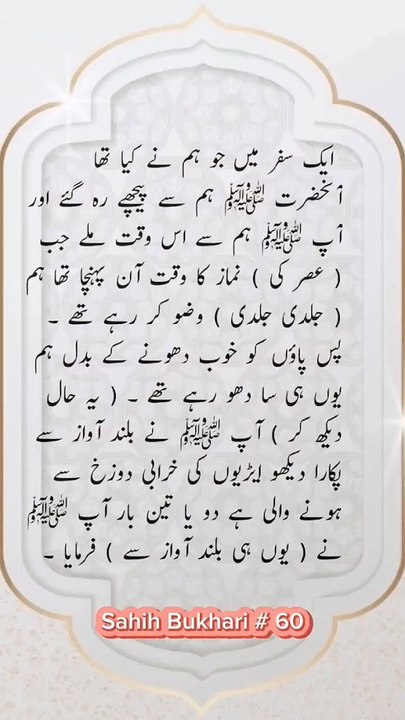 ایک سفر میں جو ہم نے کیا تھا
آنحضرت ﷺ ہم سے پیچھے رہ گئے اور
آپ ﷺ ہم سے اس وقت ملے جب
( عصر کی ) نماز کا وقت آن پہنچا تھا ہم
( جلدی جلدی ) وضو کر رہے تھے ۔
پس پاؤں کو خوب دھونے کے بدل ہم
یوں ہی سا دھو رہے تھے ۔ ( یہ حال
دیکھ کر ) آپ ﷺ نے بلند آواز سے
پکارا دیکھو ایڑیوں کی خرابی دوزخ سے
ہونے والی ہے دو یا تین بار آپ ﷺ
نے ( یوں ہی بلند آواز سے ) فرمایا ۔
Sahih Bukhari # 60